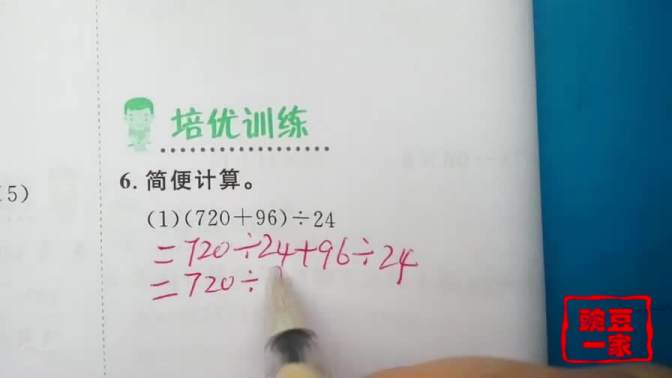 5)
培优训练
6. 简便计算。
(1)(720+96)÷24
=720÷24+96÷24
=720÷
豌豆
一家